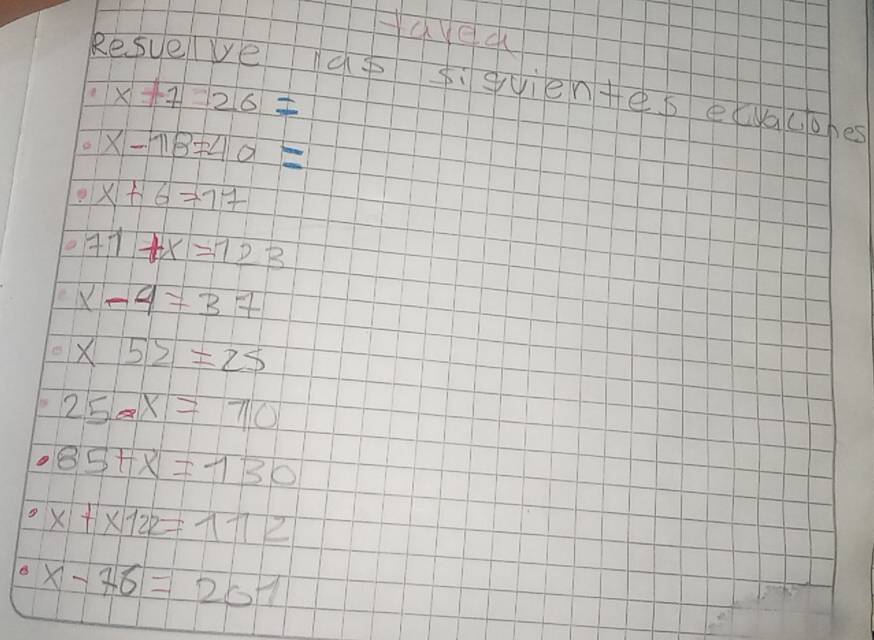 tarea
Resuelve las siguientes ecuaciones
• x + 7 = 26 =
• x - 18 = 40 =
• x + 6 = 17
• 71 + x = 123
• x - 9 = 37
• x 52 = 25
• 25 - x = 10
• 85 + x = 130
• x + x122 = 112
• x - 76 = 201